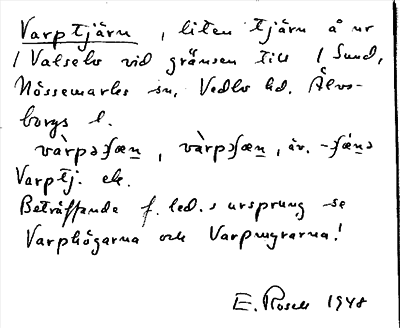 Varptjärn, liten tjärn å nr
1 Valselv vid gränsen till 1 Sund,
Nössemarks sn, Vedbo hd. Älvs-
borgs l.
vàrpəʃæn, vàrpʃæn, äv. -ʃä́nə
Varptj. ek.
Beträffande f. led.s ursprung se
Varphögarna och Varpmyrarna!
E. Rosell 1948